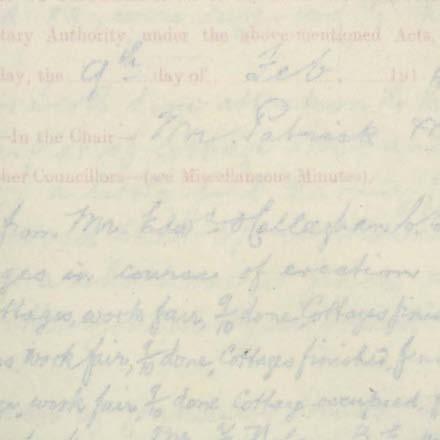 tary Authority, under the above-mentioned Acts,
day, the 9th day of Feb. 191
—In the Chair— Mr. Patrick
her Councillors—(see Miscellaneous Minutes).
from Mr. Edwd O'Callaghan
ges in course of erection
ottages, work fair, 9/10 done, Cottages finis
work fair, 9/10 done, Cottages finished,
work fair, 9/10 done Cottage occupied,
Mr.